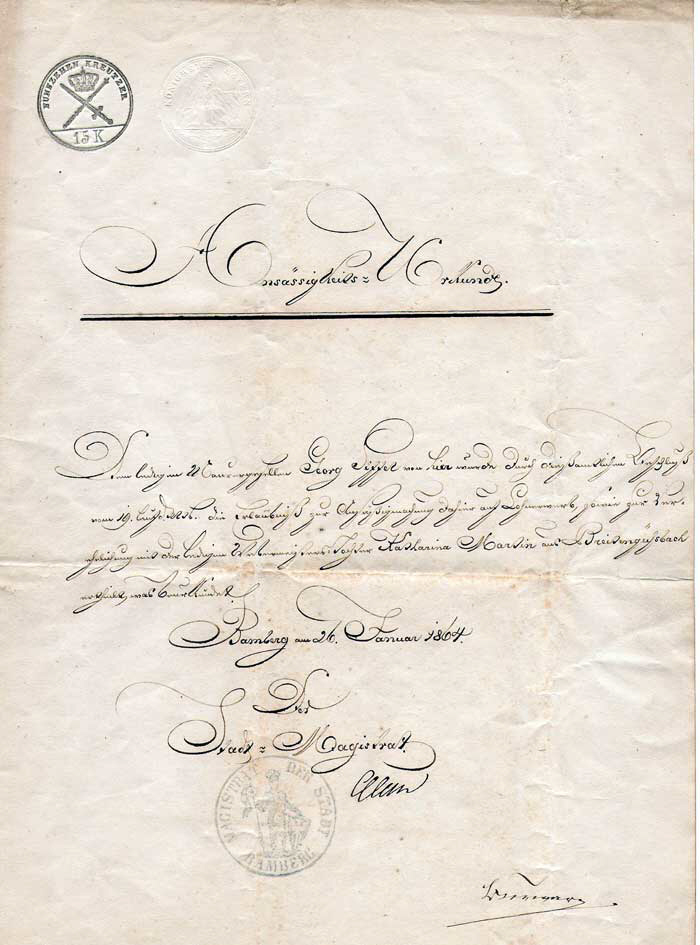 FUNFZEHEN KREUTZER
15 K
KÖNIGREICH BAYERN
Ansässigkeits-Urkunde.
Dem ledigen Maurergesellen Georg Siffel von hier wurde durch dießamtlichen Beschluß
vom 19. die Erlaubniß zur Ansässigmachung dahier auf Lohnerwerb, sowie zur Ver-
ehelichung mit der ledigen Tochter Katharina Martin aus Breitengüßbach
ertheilt, was beurkundet
Bamberg am 26. Januar 1864.
Der
Stadt-Magistrat.
MAGISTRAT DER STADT BAMBERG